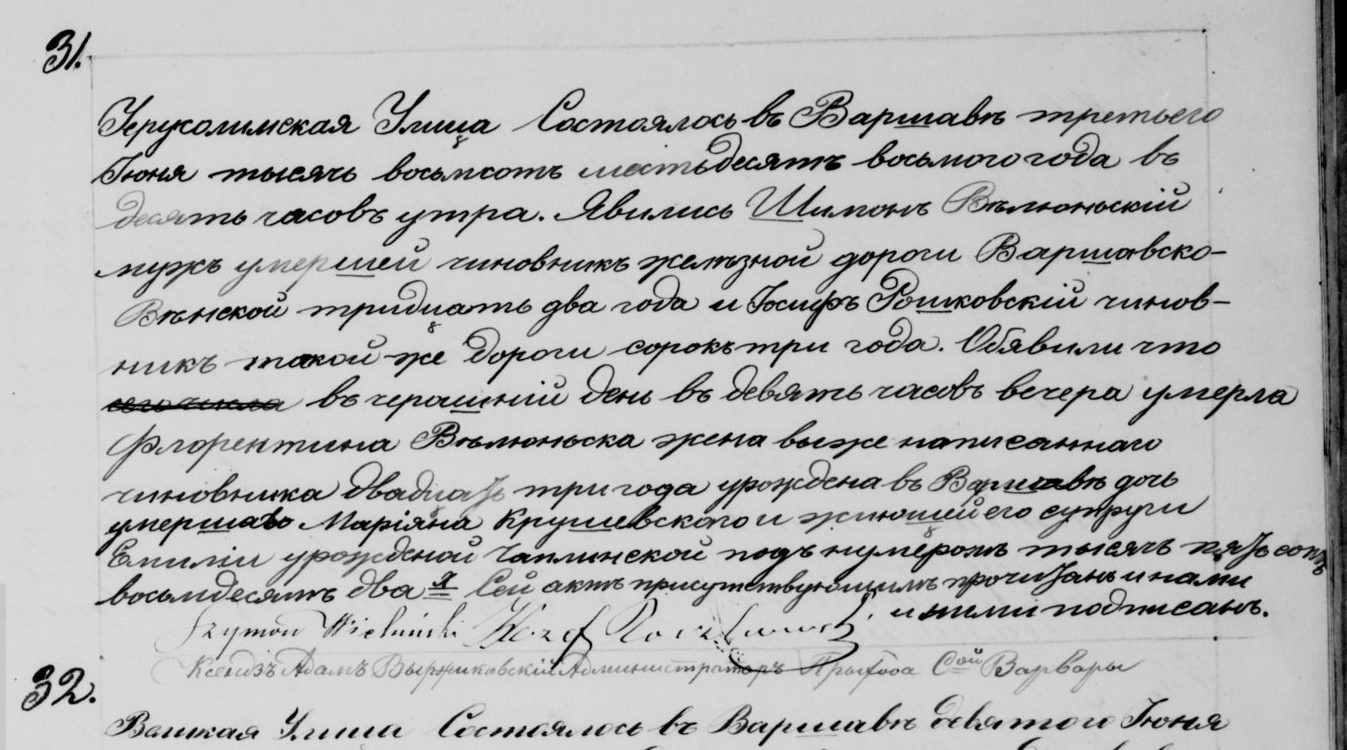 31.
Іерусолимская Улица Состоялось въ Варшавѣ третьего
Іюня тысячъ восьмсотъ шестьдесятъ восьмого года въ
десять часовъ утра. Явились Шимонъ Вѣлюньскій
мужъ умершей чиновникъ желѣзной дороги Варшавско-
Вѣнской тридцать два года и Іосифъ Рошковскій чинов-
никъ такой же дороги сорокъ три года. Обявили что
сего числа въ черашній день въ девять часовъ вечера умерла
Флорентина Вѣлюньска жена выже написаннаго
чиновника двадцать три года урождена въ Варшавѣ дочь
умершаго Маріяна Крушевскаго и жиющей его супруги
Емиліи урожденой Чаплинской подъ нумеромъ тысячъ пятьсотъ
восьмдесятъ два я Сей актъ присутствующимъ прочитанъ и нами
и ними подписанъ.
Szymon Wieluński Józef Roszkowski
Ксендзъ Адамъ Выржиковскій Администраторъ Прыхода Сой Варвары
32.
Велкая Улица Состоялось въ Варшавѣ девятого Іюня